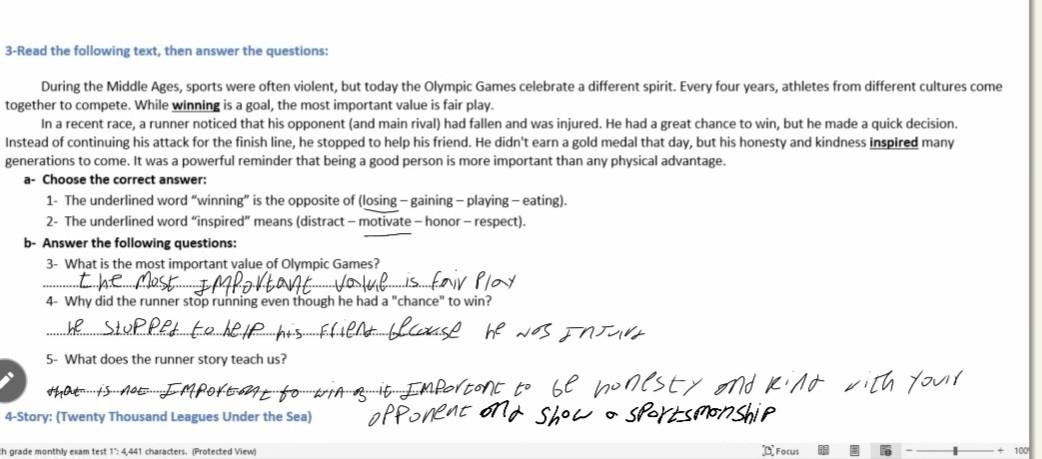 3-Read the following text, then answer the questions:
During the Middle Ages, sports were often violent, but today the Olympic Games celebrate a different spirit. Every four years, athletes from different cultures come
together to compete. While winning is a goal, the most important value is fair play.
In a recent race, a runner noticed that his opponent (and main rival) had fallen and was injured. He had a great chance to win, but he made a quick decision.
Instead of continuing his attack for the finish line, he stopped to help his friend. He didn't earn a gold medal that day, but his honesty and kindness inspired many
generations to come. It was a powerful reminder that being a good person is more important than any physical advantage.
a- Choose the correct answer:
1- The underlined word “winning” is the opposite of (losing – gaining – playing – eating).
2- The underlined word “inspired” means (distract – motivate – honor – respect).
b- Answer the following questions:
3- What is the most important value of Olympic Games?
the most important value is fair play
4- Why did the runner stop running even though he had a "chance" to win?
he stopped to help his friend because he was injure
5- What does the runner story teach us?
that is not important to win it important to be honesty and kind with your
4-Story: (Twenty Thousand Leagues Under the Sea)
opponent and show a sportsmanship
h grade monthly exam test 1": 4,441 characters. (Protected View)
Focus
100